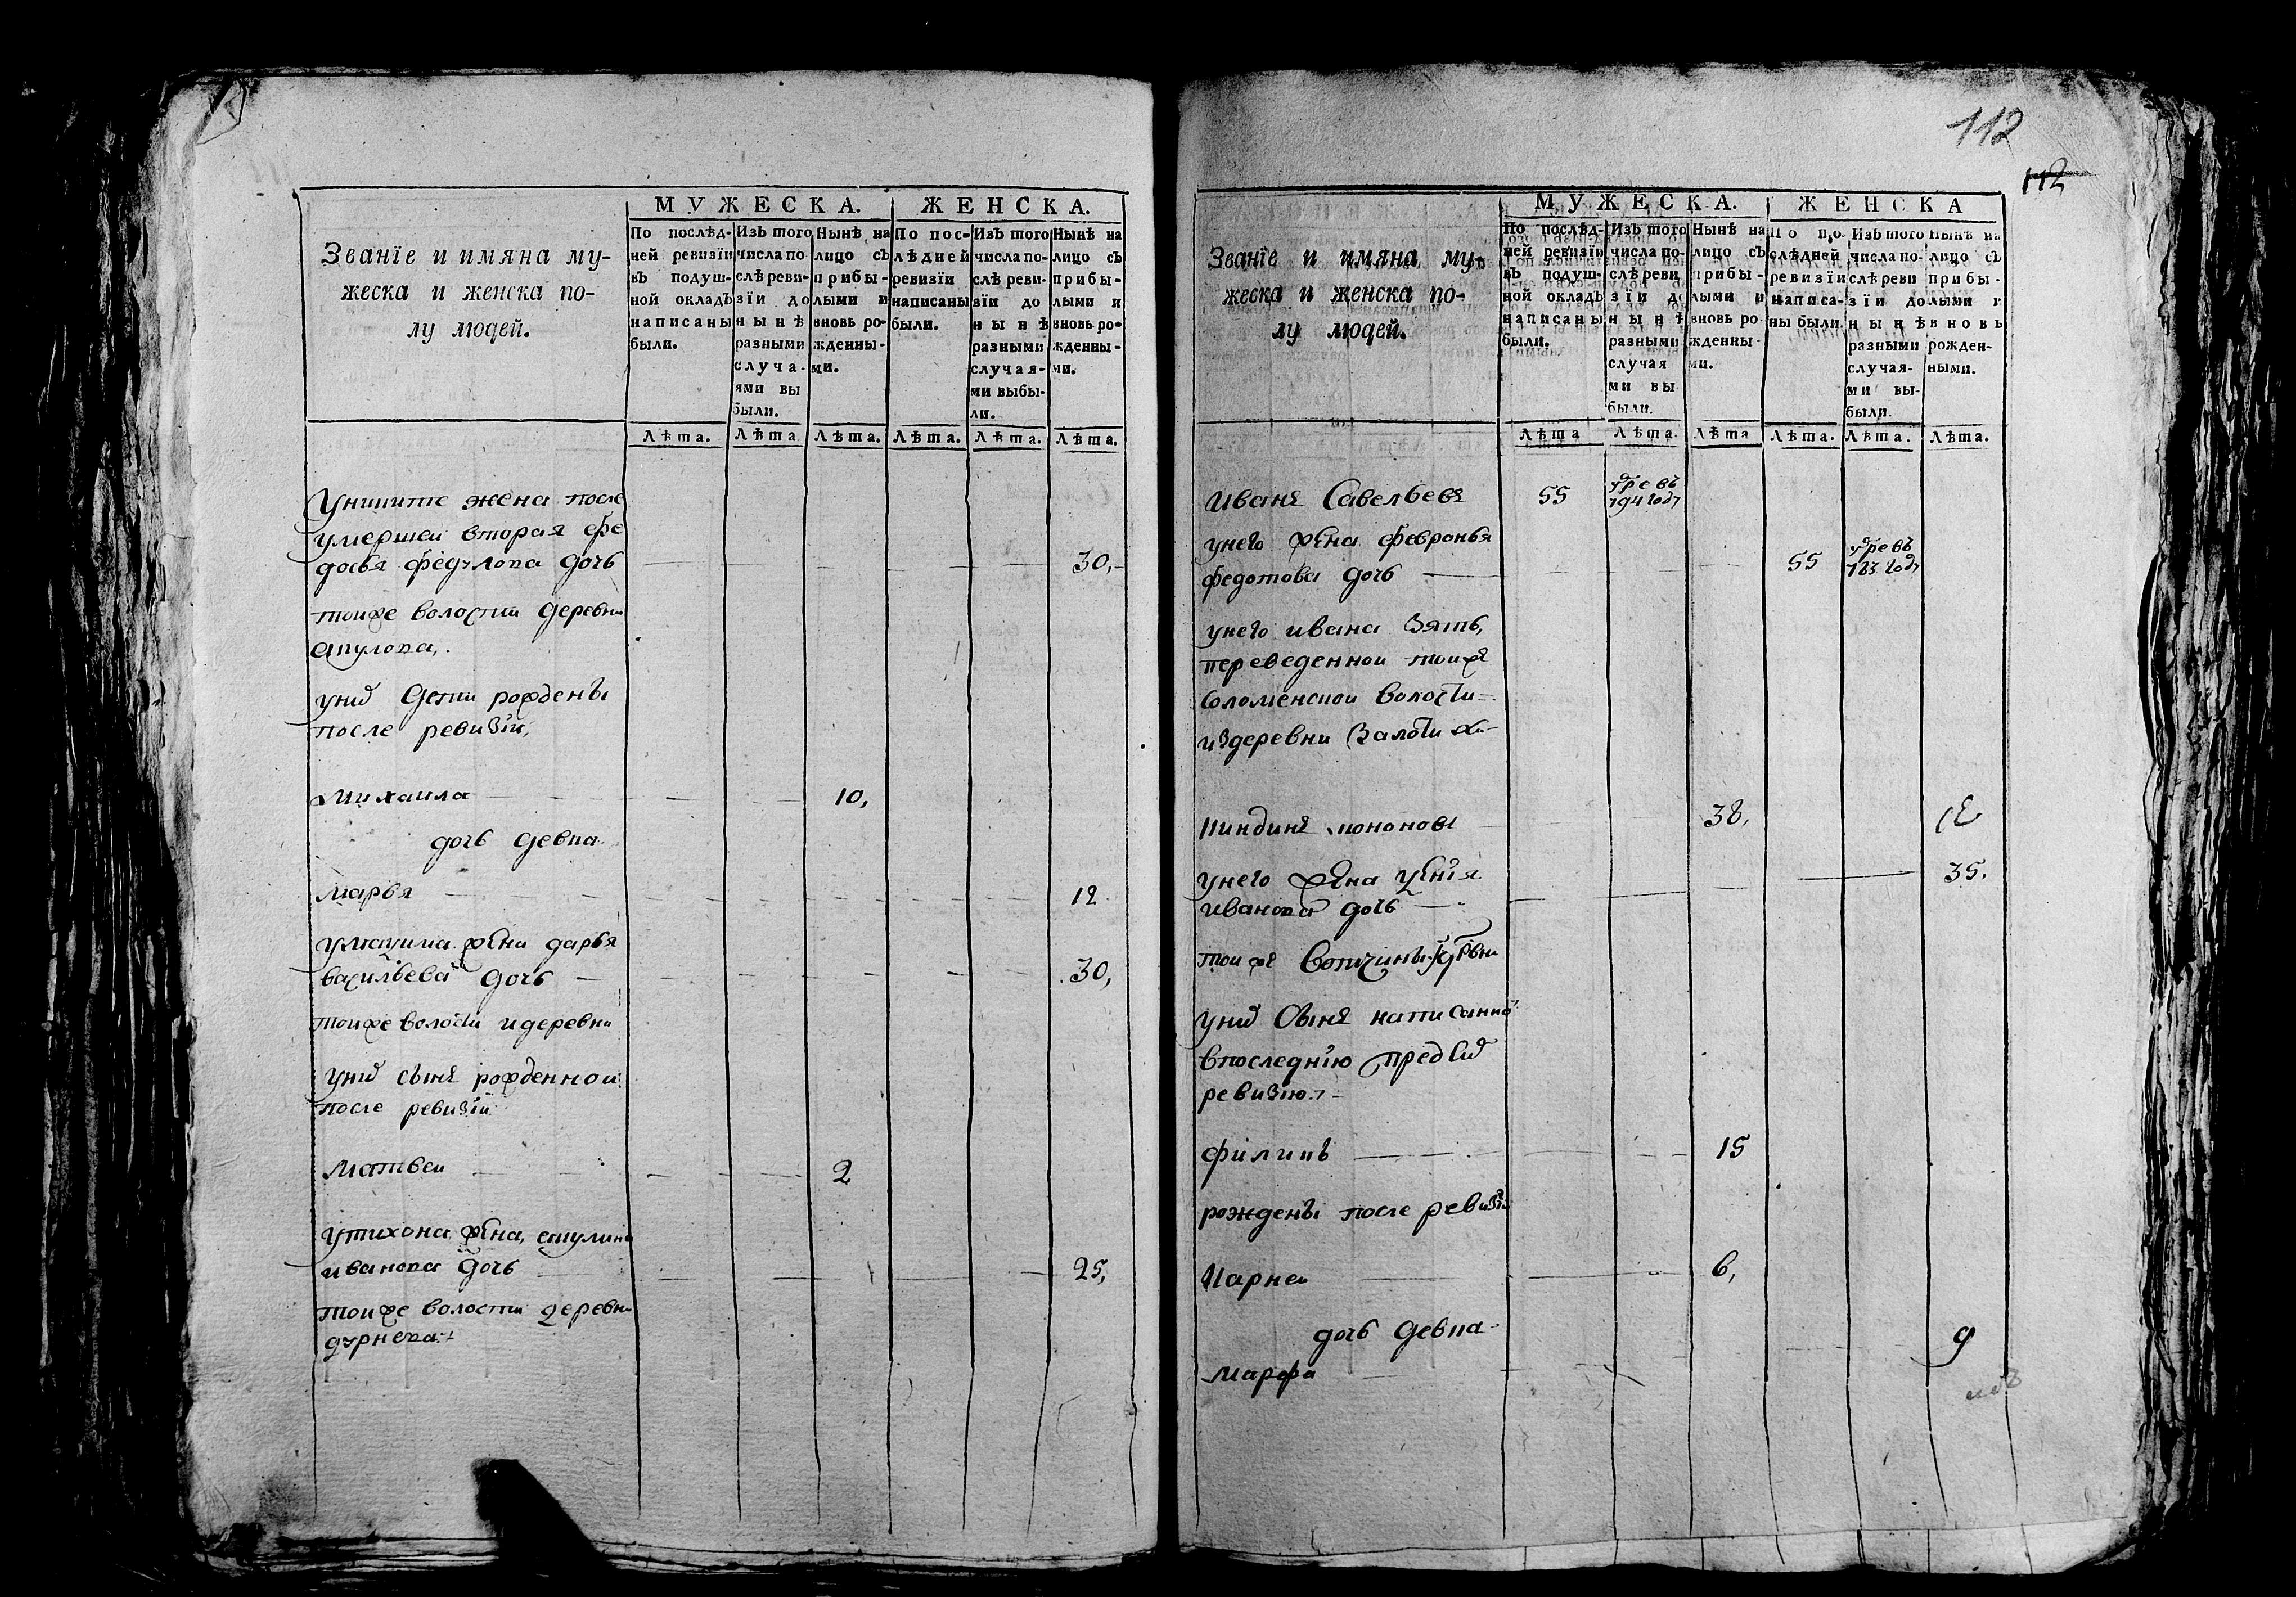 Званїе и имяна му-
жеска и женска по-
лу людей.
МУЖЕСКА.
ЖЕНСКА.
По послѣд-
ней ревизїи
въ подуш-
ной окладъ
написаны
были.
Изъ того
числа по
слѣ реви-
зїи до
нынѣ
разными
случа-
ями вы
были.
Нынѣ на
лицо съ
прибы-
лыми и
вновь ро-
жденны-
ми.
По пос-
лѣдней
ревизїи
написаны
были.
Изъ того
числа по-
слѣ реви-
зїи до
нынѣ
разными
случая-
ми выбы-
ли.
Нынѣ на
лицо съ
прибы-
лыми и
вновь ро-
жденны-
ми.
Лѣта. Лѣта. Лѣта. Лѣта. Лѣта. Лѣта.
жена после
умершеи вторая фе
досья дочь 30,
тоиже волости деревни
унихъ дети рождены
после ревизїи,
Михаила 10,
дочь девка
Марья 12
жена дарья
васильева дочь 30,
тоиже волости идеревни
унихъ сынъ рожденнои
после ревизїи
Матвеи 2
утихона жена, акулина
иванова дочь 25,
тоиже волости деревни
112
112
Званїе и имяна му-
жеска и женска по-
лу людей.
МУЖЕСКА.
ЖЕНСКА
По послѣд-
ней ревизїи
въ подуш-
ной окладъ
написаны
были.
Изъ того
числа по-
слѣ реви
зїи до
нынѣ
разными
случая
ми вы
были.
Нынѣ на
лицо съ
прибы-
лыми и
вновь ро
жденны-
ми.
По по-
слѣдней
ревизїи
написа-
ны были
Изъ того
числа по-
слѣ реви
зїи до
нынѣ
разными
случая-
ми вы-
были.
Нынѣ на
лицо съ
прибы-
лыми и
вновь
рожден-
ными.
Лѣта Лѣта. Лѣта Лѣта. Лѣта. Лѣта.
иванъ Савельевъ 55 умре въ 794 году
унего жена февронья
федотова дочь 55 умре въ 783 году
унего ивана зять,
переведеннои тоиже
Соломенскои волости
издеревни
38,
унего жена 35.
иванова дочь
тоиже вотчины
унихъ сынъ написаннои
впоследнїю предъ сихъ
ревизїю
филипъ 15
рождены после ревизїи
Карпеи 6,
дочь девка
Марфа 9